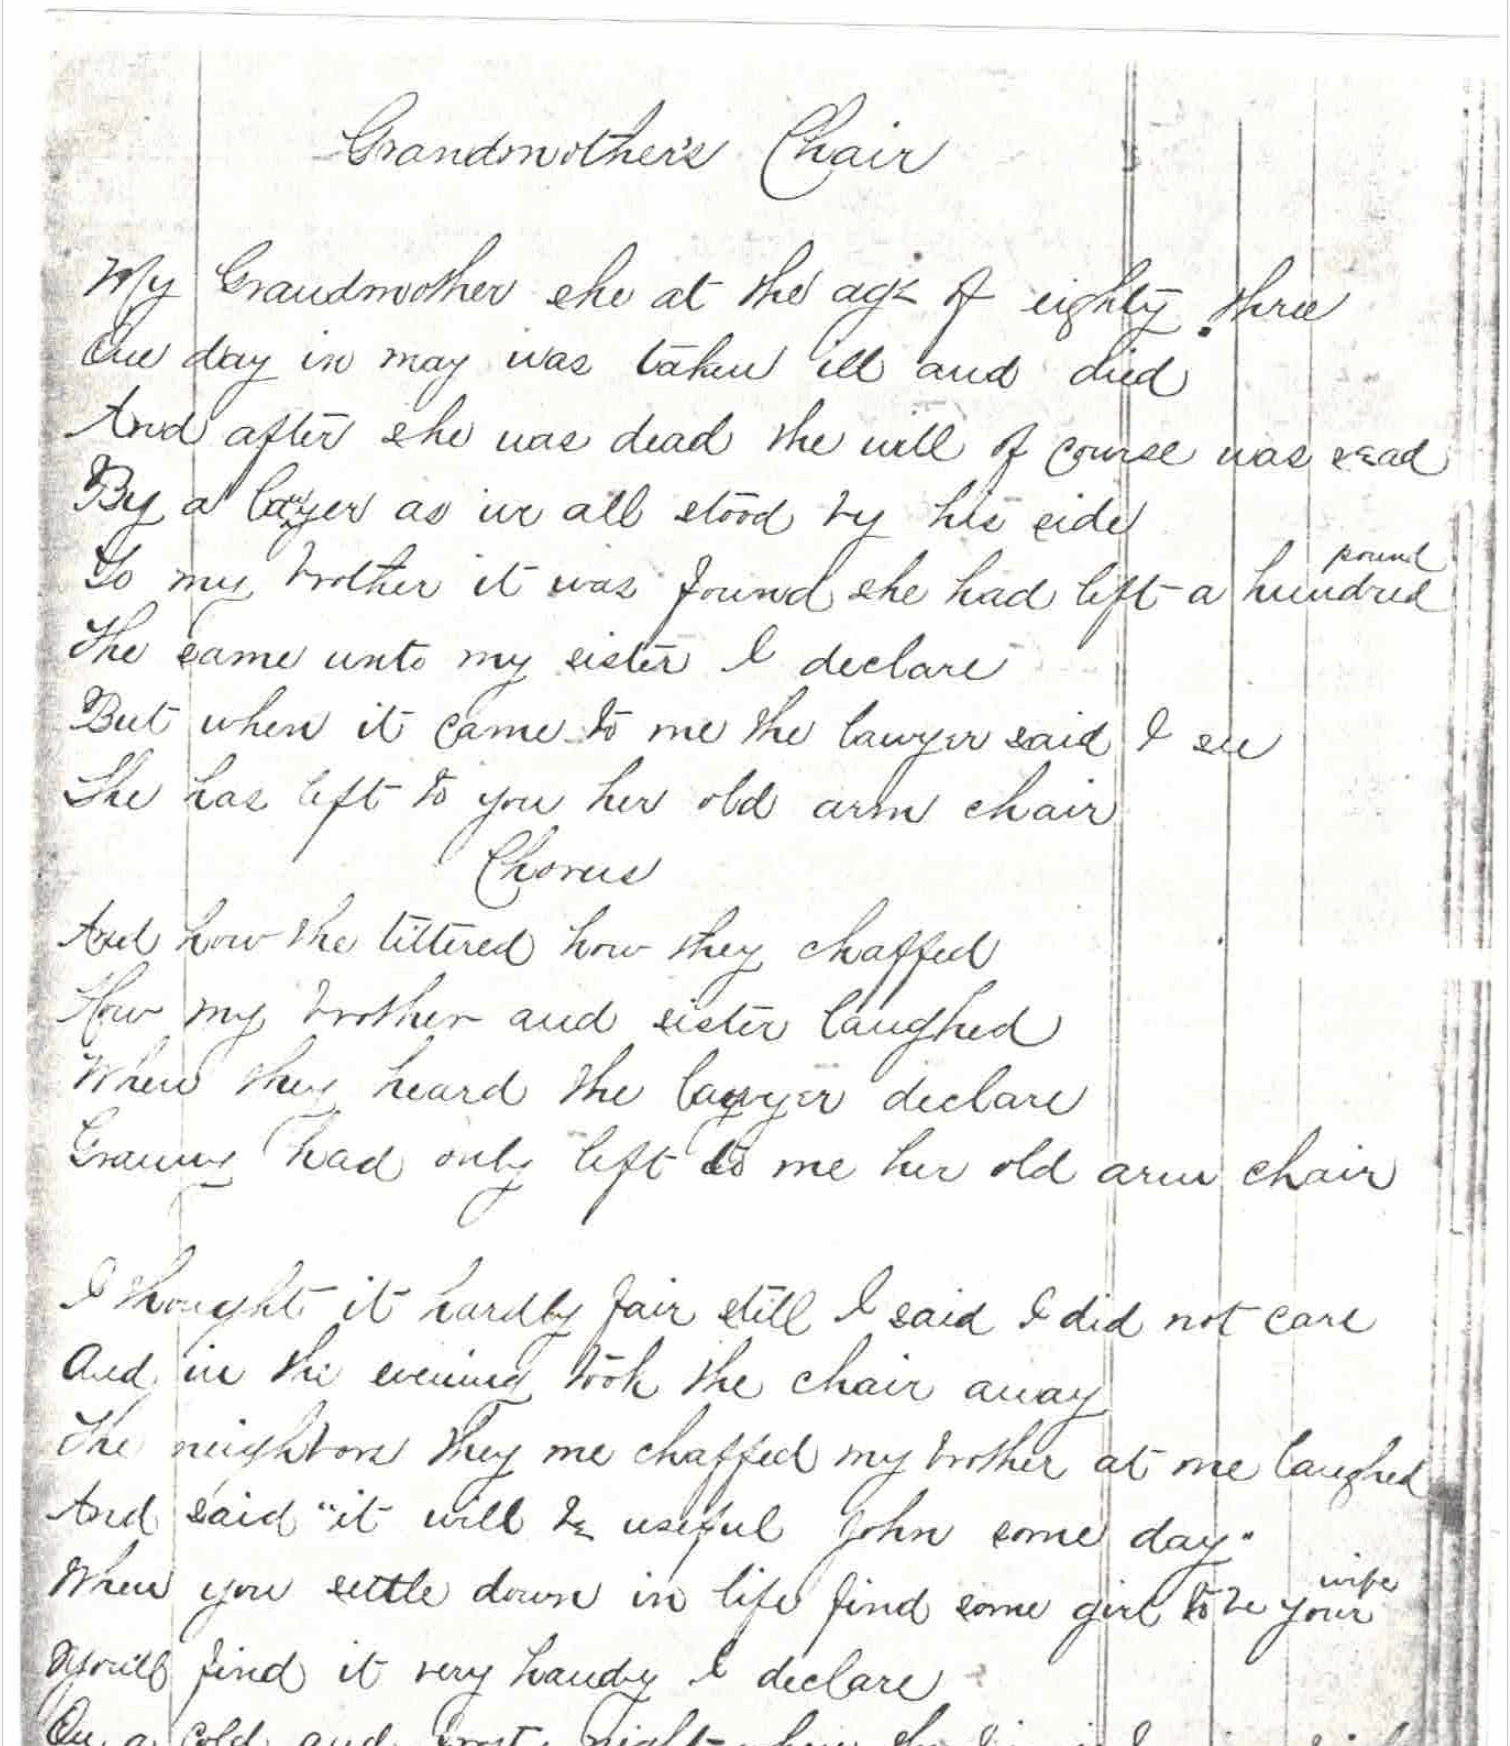 Grandmother's Chair
My Grandmother she at the age of eighty three
One day in may was taken ill and died
And after she was dead the will of course was read
By a lawyer as we all stood by his side
pound
To my brother it was found she had left a hundred
The same unto my sister I declare
But when it came to me the lawyer said I see
She has left to you her old arm chair
Chorus
And how the tittered how they chaffed
How my brother and sister laughed
When they heard the lawyer declare
Granny had only left to me her old arm chair
I thought it hardly fair still I said I did not care
And in the evening took the chair away
The neighbors they me chaffed my brother at me laughed
And said "it will be useful John some day"
wife
When you settle down in life find some girl to be your
You'll find it very handy I declare
On a cold and frosty night when the